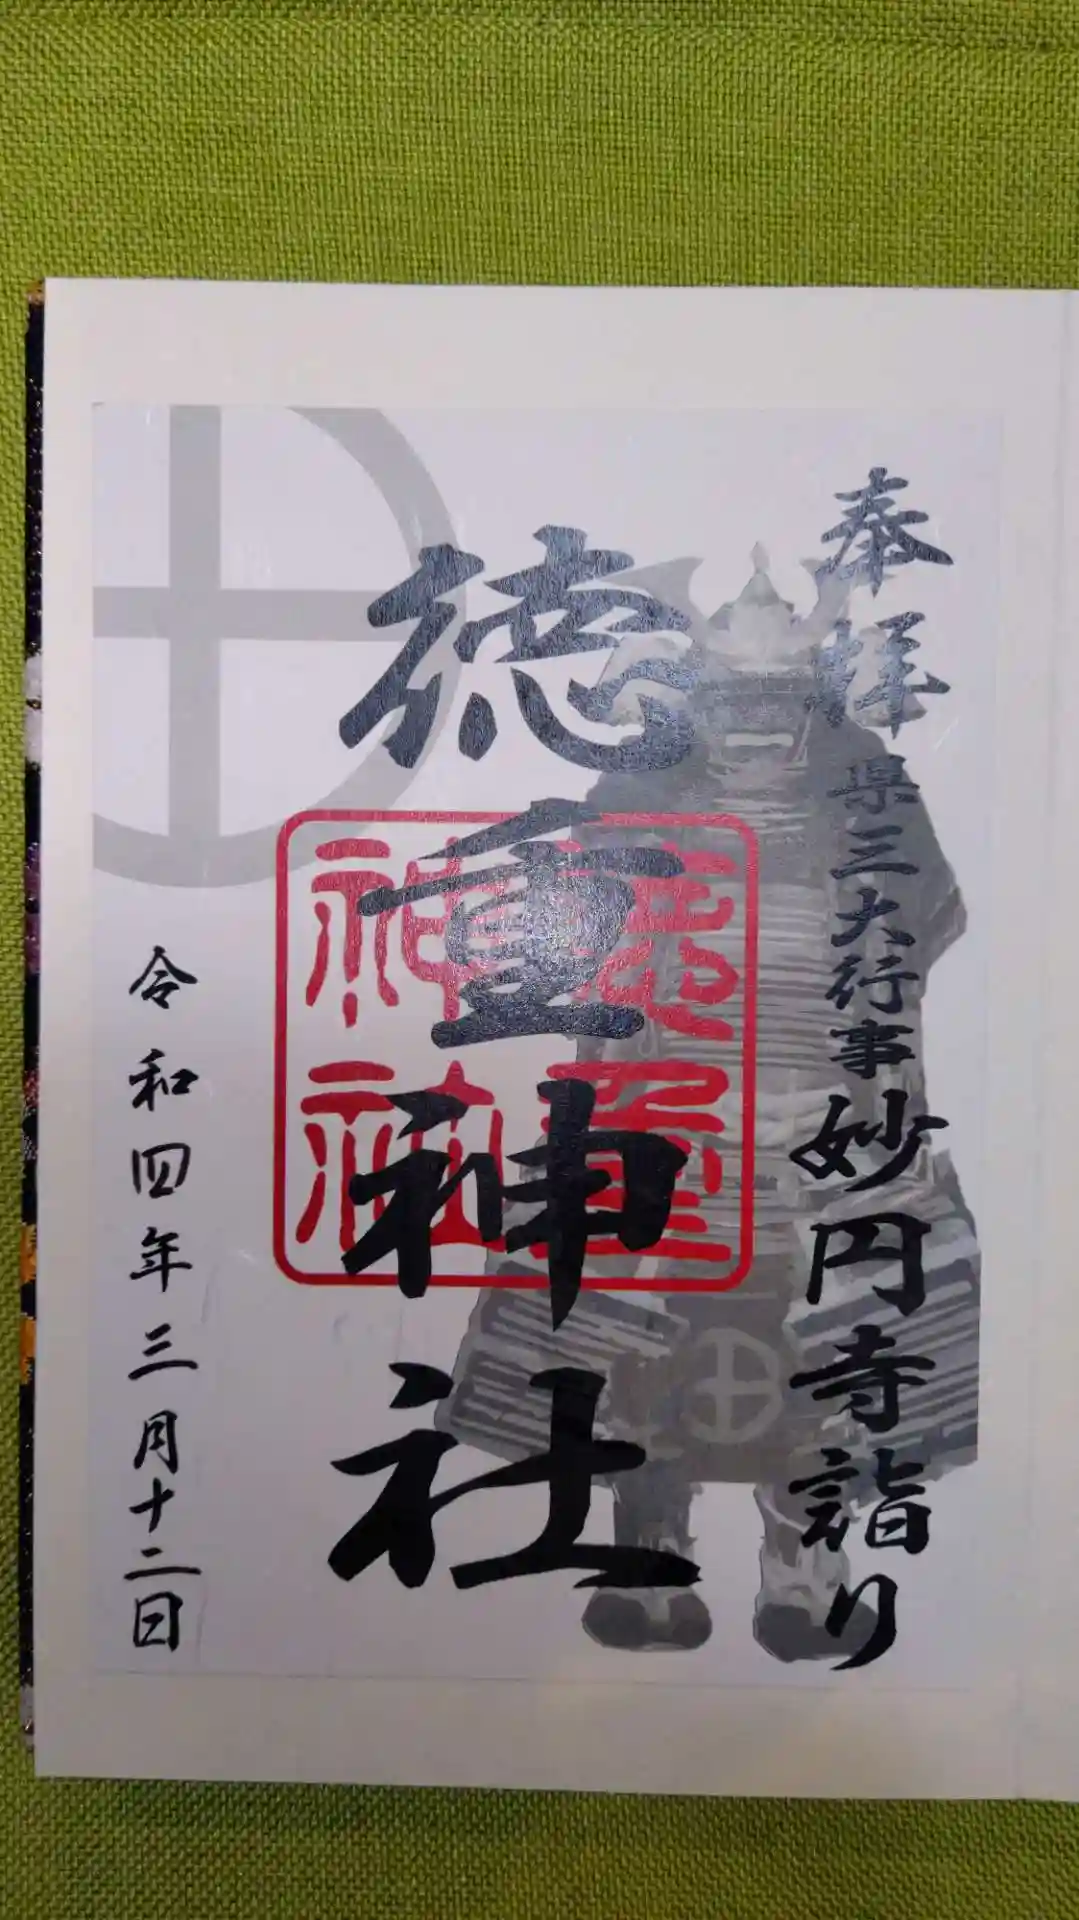 奉拝
県三大行事
妙円寺詣り
徳重神社
徳重
神社
令和四年三月十二日